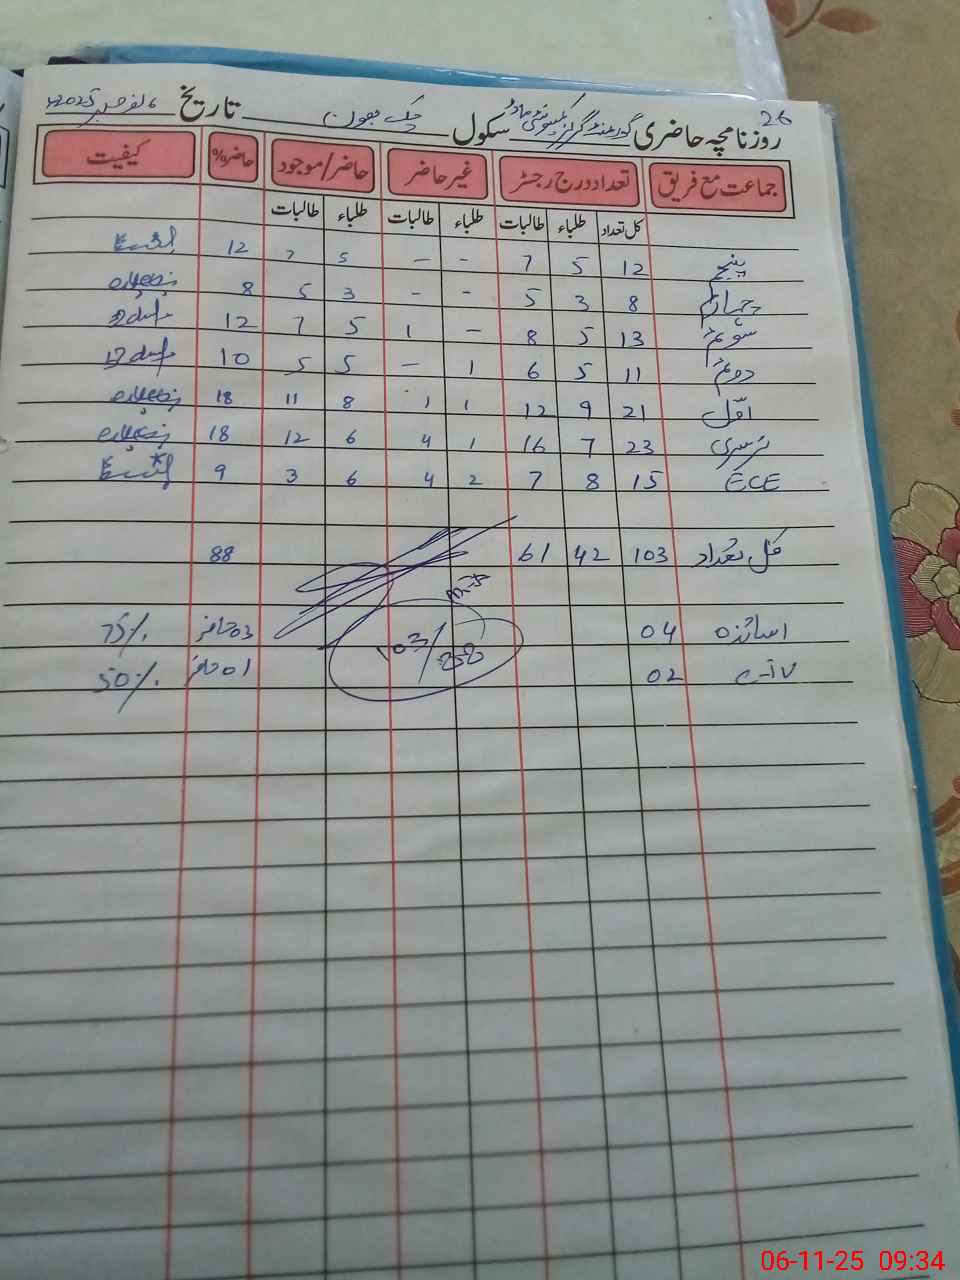 26
روزنامچہ حاضری گورنمنٹ گرلز کمیونٹی ماڈل سکول چک بھون تاریخ 6 نومبر 2025
جماعت مع فریق تعداد درج رجسٹر غیر حاضر حاضر/موجود حاضر% کیفیت
کل تعداد طلباء طالبات طلباء طالبات طلباء طالبات
پنجم 12 5 7 - - 5 7 12
چہارم 8 3 5 - - 3 5 8
سوئم 13 5 8 - 1 5 7 12
دوئم 11 5 6 1 - 5 5 10
اوّل 21 9 12 1 1 8 11 18
نرسری 23 7 16 1 4 6 12 18
ECE 15 8 7 2 4 6 3 9
کل تعداد 103 42 61 88
اساتذہ 04 03 حاضر 75%
02 01 حاضر 50%
103/88
06-11-25 09:34